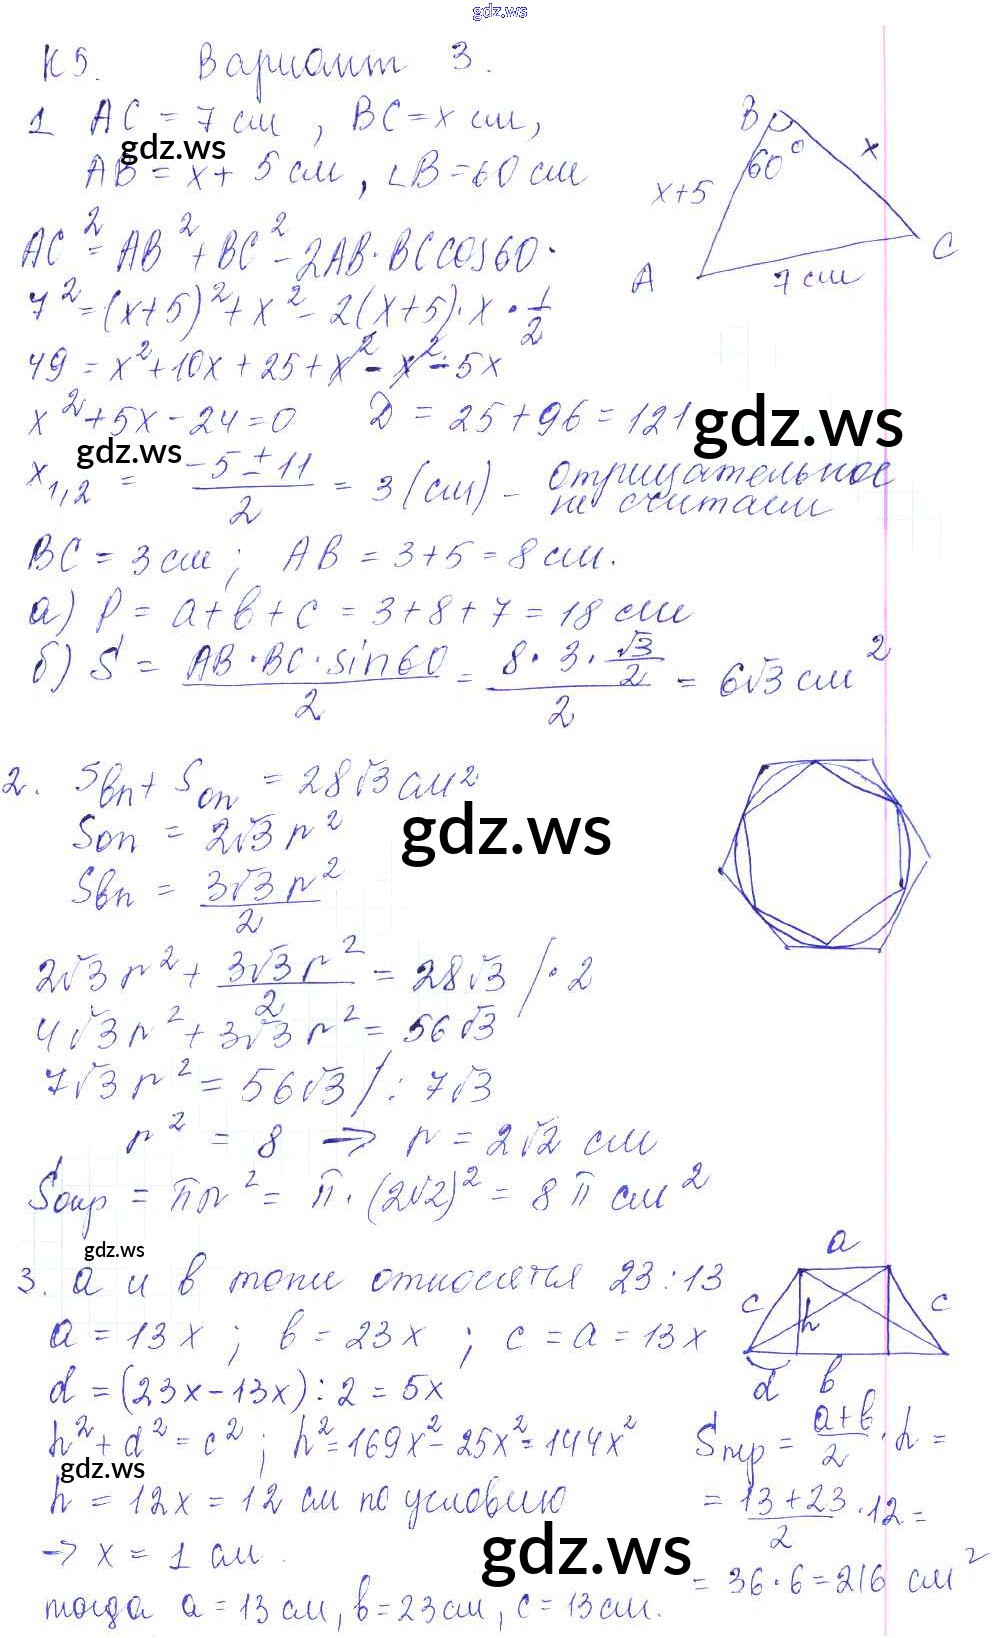 gdz.ws
К5. Вариант 3.
1 AC = 7 см, BC = x см,
gdz.ws
AB = x + 5 см, ∠B = 60 см
B
60°
x
x+5
A
7 см
C
AC² = AB² + BC² - 2AB·BC cos60°
7² = (x+5)² + x² - 2(x+5)·x·1/2
49 = x² + 10x + 25 + x² - x² - 5x
x² + 5x - 24 = 0 D = 25 + 96 = 121
gdz.ws
gdz.ws
x₁,₂ = (-5 ± 11)/2 = 3 (см) - отрицательное
не считаем
BC = 3 см; AB = 3 + 5 = 8 см.
а) P = a + b + c = 3 + 8 + 7 = 18 см
б) S = (AB·BC·sin60)/2 = (8·3·√3/2)/2 = 6√3 см²
2. Sвп + Sоп = 28√3 см²
Sоп = 2√3 r²
gdz.ws
Sвп = 3√3 r²/2
2√3 r² + 3√3 r²/2 = 28√3 /·2
4√3 r² + 3√3 r² = 56√3
7√3 r² = 56√3 /: 7√3
r² = 8 → r = 2√2 см
Sокр = πr² = π·(2√2)² = 8π см²
gdz.ws
3. a и b тоже относятся 23:13
a = 13x; b = 23x; c = a = 13x
d = (23x - 13x):2 = 5x
h² + d² = c²; h² = 169x² - 25x² = 144x²
gdz.ws
h = 12x = 12 см по условию
→ x = 1 см.
gdz.ws
тогда a = 13 см, b = 23 см, c = 13 см.
a
c
h
c
d
b
Sтр = (a+b)/2 · h =
= (13+23)/2 · 12 =
= 36·6 = 216 см²